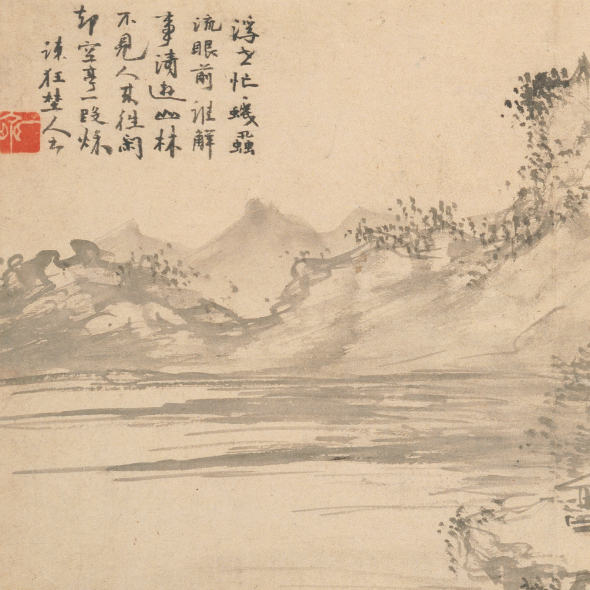 浮世忙忙蟻蟲
流眼前誰解
事清遊山林
不見人來往閑
却空亭一段秋
狂埜人書